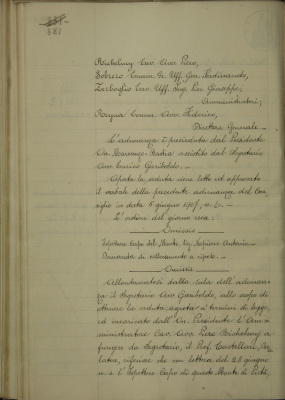 581
Richelmy Cav. Avv. Piero,
Sobrero Comm. Uff. Gen. Ferdinando,
Zerboglio Cav. Uff. Ing. Pier Giuseppe,
Amministratori;
Comm. Avv. Federico,
Direttore Generale.
L'adunanza è presieduta dal Presidente
On. Marengo assistito dal Segretario
Avv. Enrico Garibaldo.
Aperta la seduta viene letto ed approvato
il verbale della precedente adunanza del Con
siglio in data 6 giugno
L'ordine del giorno reca:
Omissis
Ispettore Capo del Monte, Antonio
Domanda di collocamento a riposo.
Omissis
Allontanatosi dalla sala dell'adunan
za il Segretario Avv. Garibaldo, allo scopo di
la seduta segreta a termini di legge,
ed incaricato dall'On. Presidente l'Am
ministratore Cav. Avv. Piero Richelmy a
fungere da Segretario, il Prof. Castellari, Re
latore, riferisce che con lettera del 28 giugno
u. s. l'Ispettore Capo di questo Monte di Pietà,